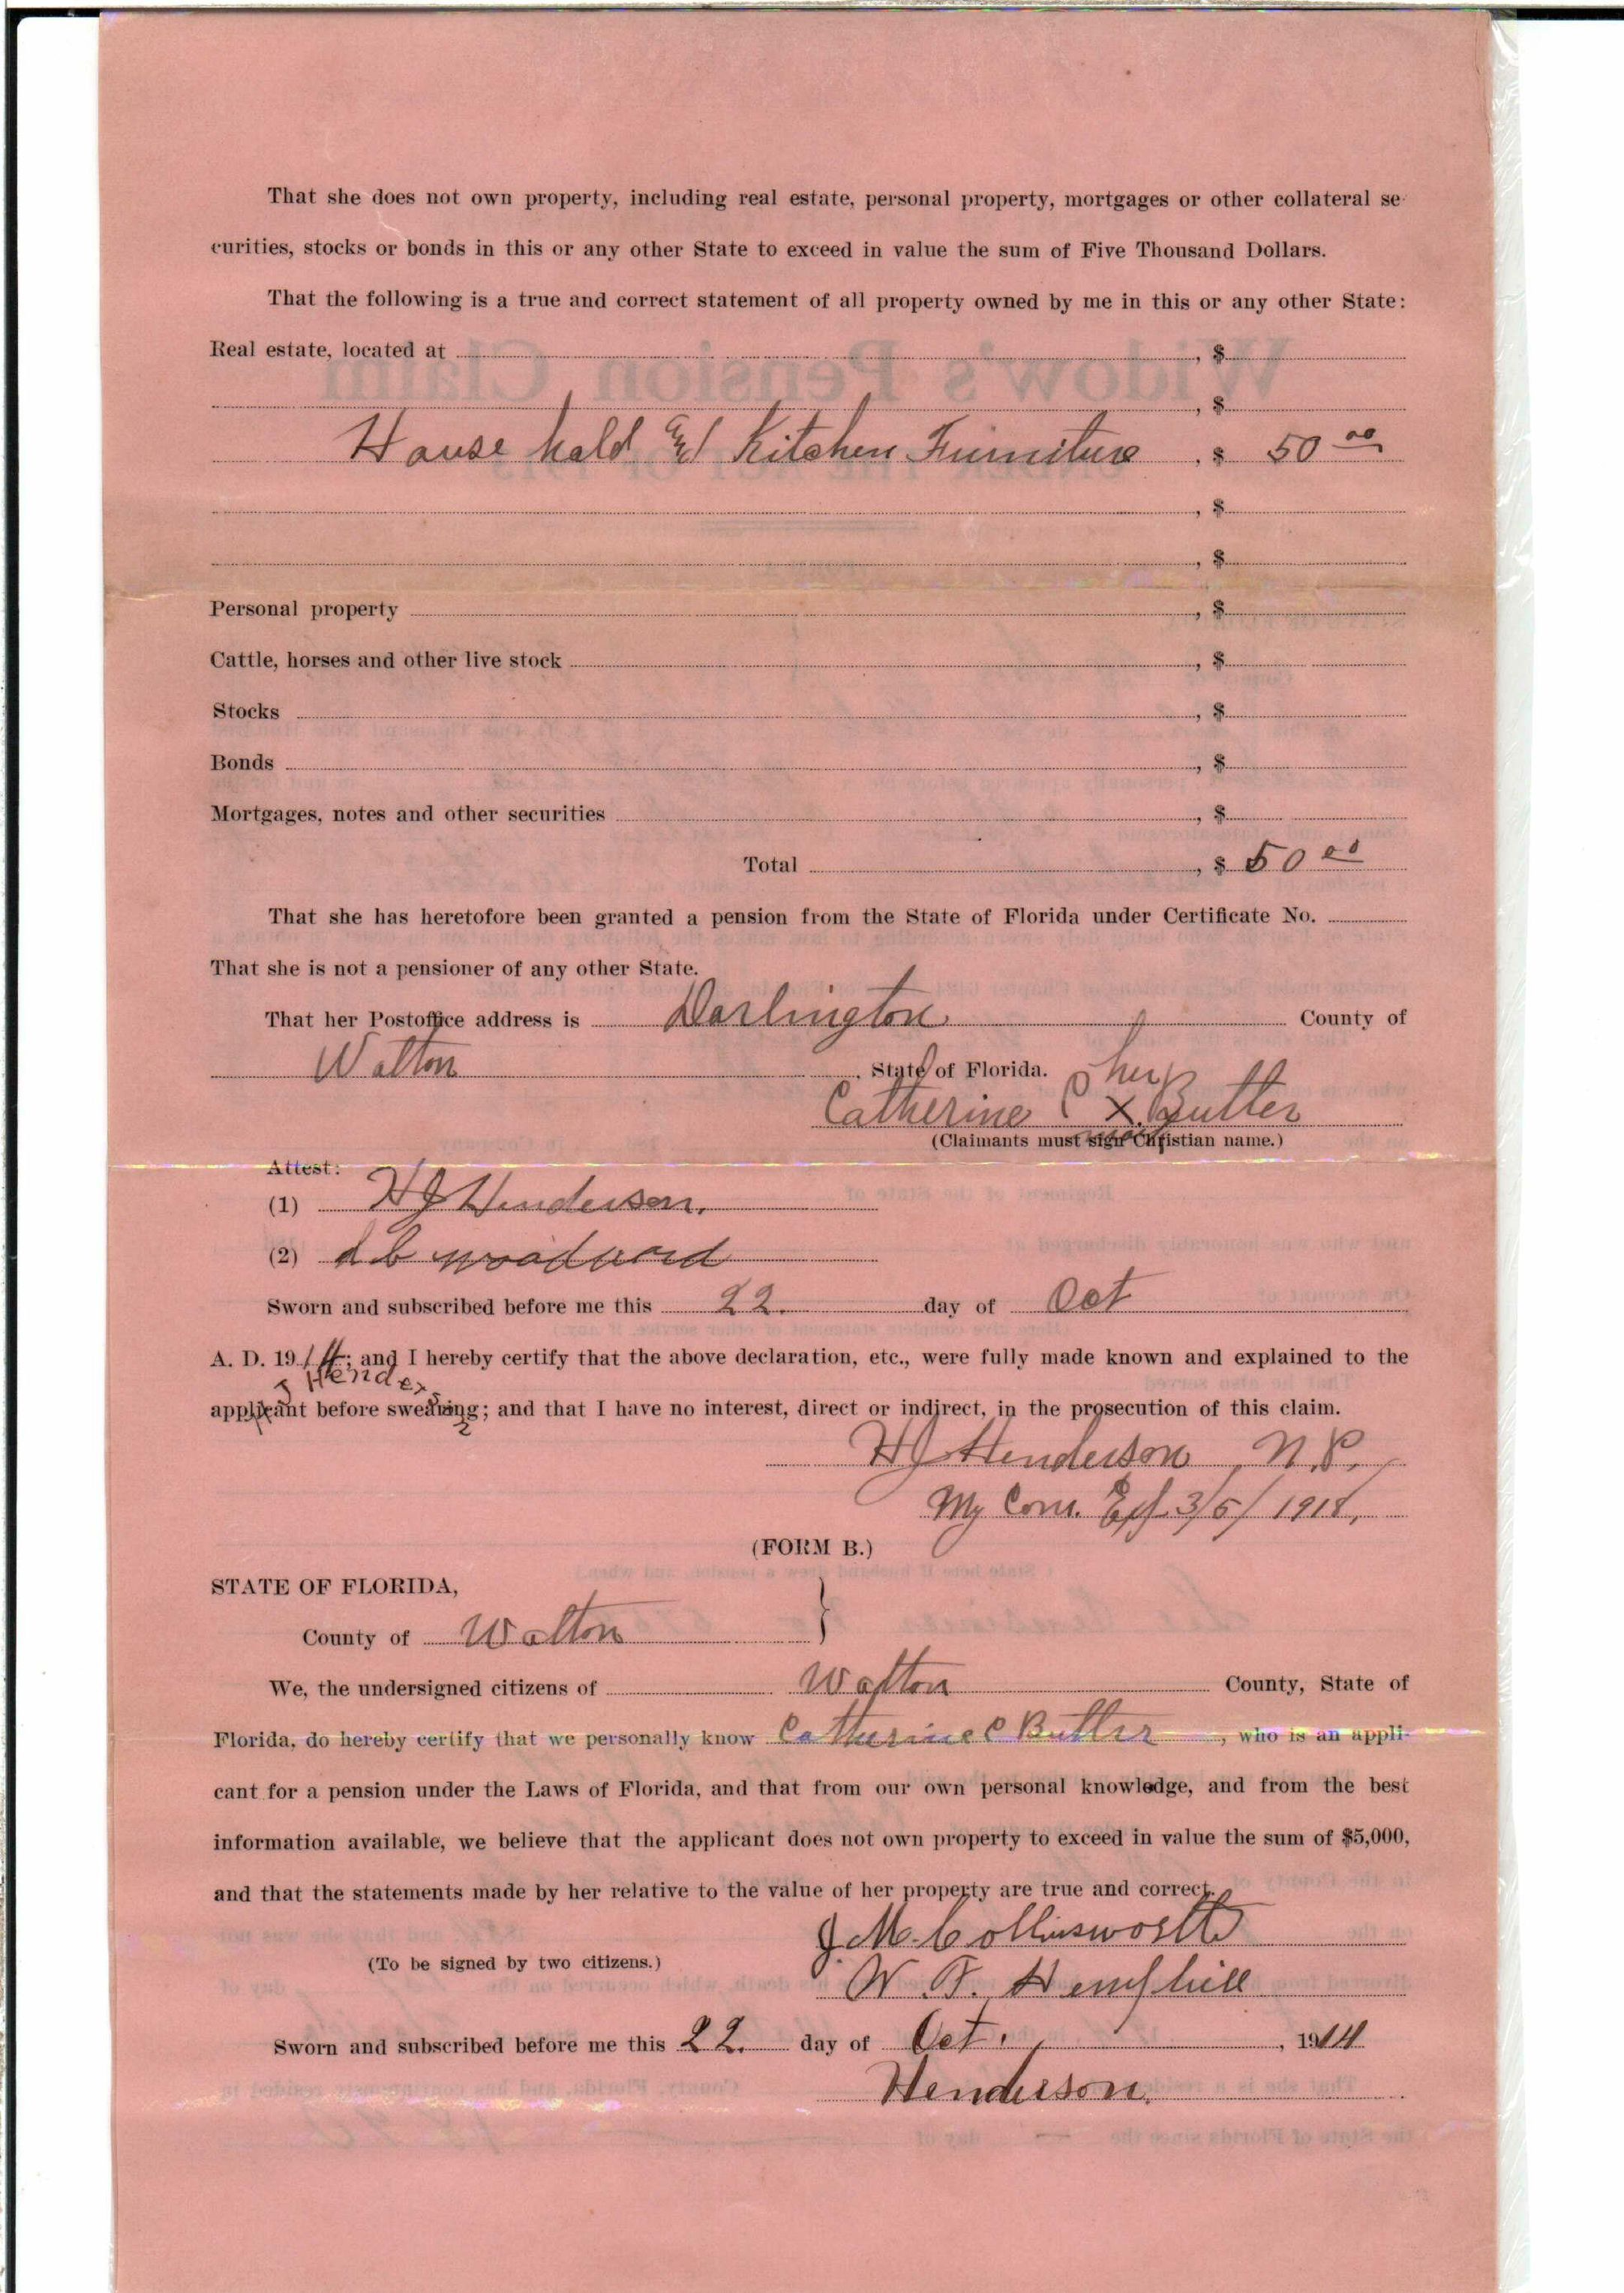 That she does not own property, including real estate, personal property, mortgages or other collateral se-
curities, stocks or bonds in this or any other State to exceed in value the sum of Five Thousand Dollars.
That the following is a true and correct statement of all property owned by me in this or any other State:
Real estate, located at , $
, $
House hold & Kitchen Furniture , $ 50 00
, $
, $
Personal property , $
Cattle, horses and other live stock , $
Stocks , $
Bonds , $
Mortgages, notes and other securities , $
Total , $ 50 00
That she has heretofore been granted a pension from the State of Florida under Certificate No.
That she is not a pensioner of any other State.
That her Postoffice address is Darlington County of
Walton , State of Florida.
her
Catherine C X Butler
mark
(Claimants must sign Christian name.)
Attest:
(1) HJ Henderson.
(2) woodward
Sworn and subscribed before me this 22. day of Oct
A. D. 1914; and I hereby certify that the above declaration, etc., were fully made known and explained to the
applicant before swearing; and that I have no interest, direct or indirect, in the prosecution of this claim.
HJ Henderson, N.P.,
My Com. Exp. 3/5/1918,
(FORM B.)
STATE OF FLORIDA,
County of Walton }
We, the undersigned citizens of Walton County, State of
Florida, do hereby certify that we personally know Catherine C Butler, who is an appli-
cant for a pension under the Laws of Florida, and that from our own personal knowledge, and from the best
information available, we believe that the applicant does not own property to exceed in value the sum of $5,000,
and that the statements made by her relative to the value of her property are true and correct.
J. M. Collinsworth
(To be signed by two citizens.)
W. F. Hemphill
Sworn and subscribed before me this 22. day of Oct. , 1914
Henderson.